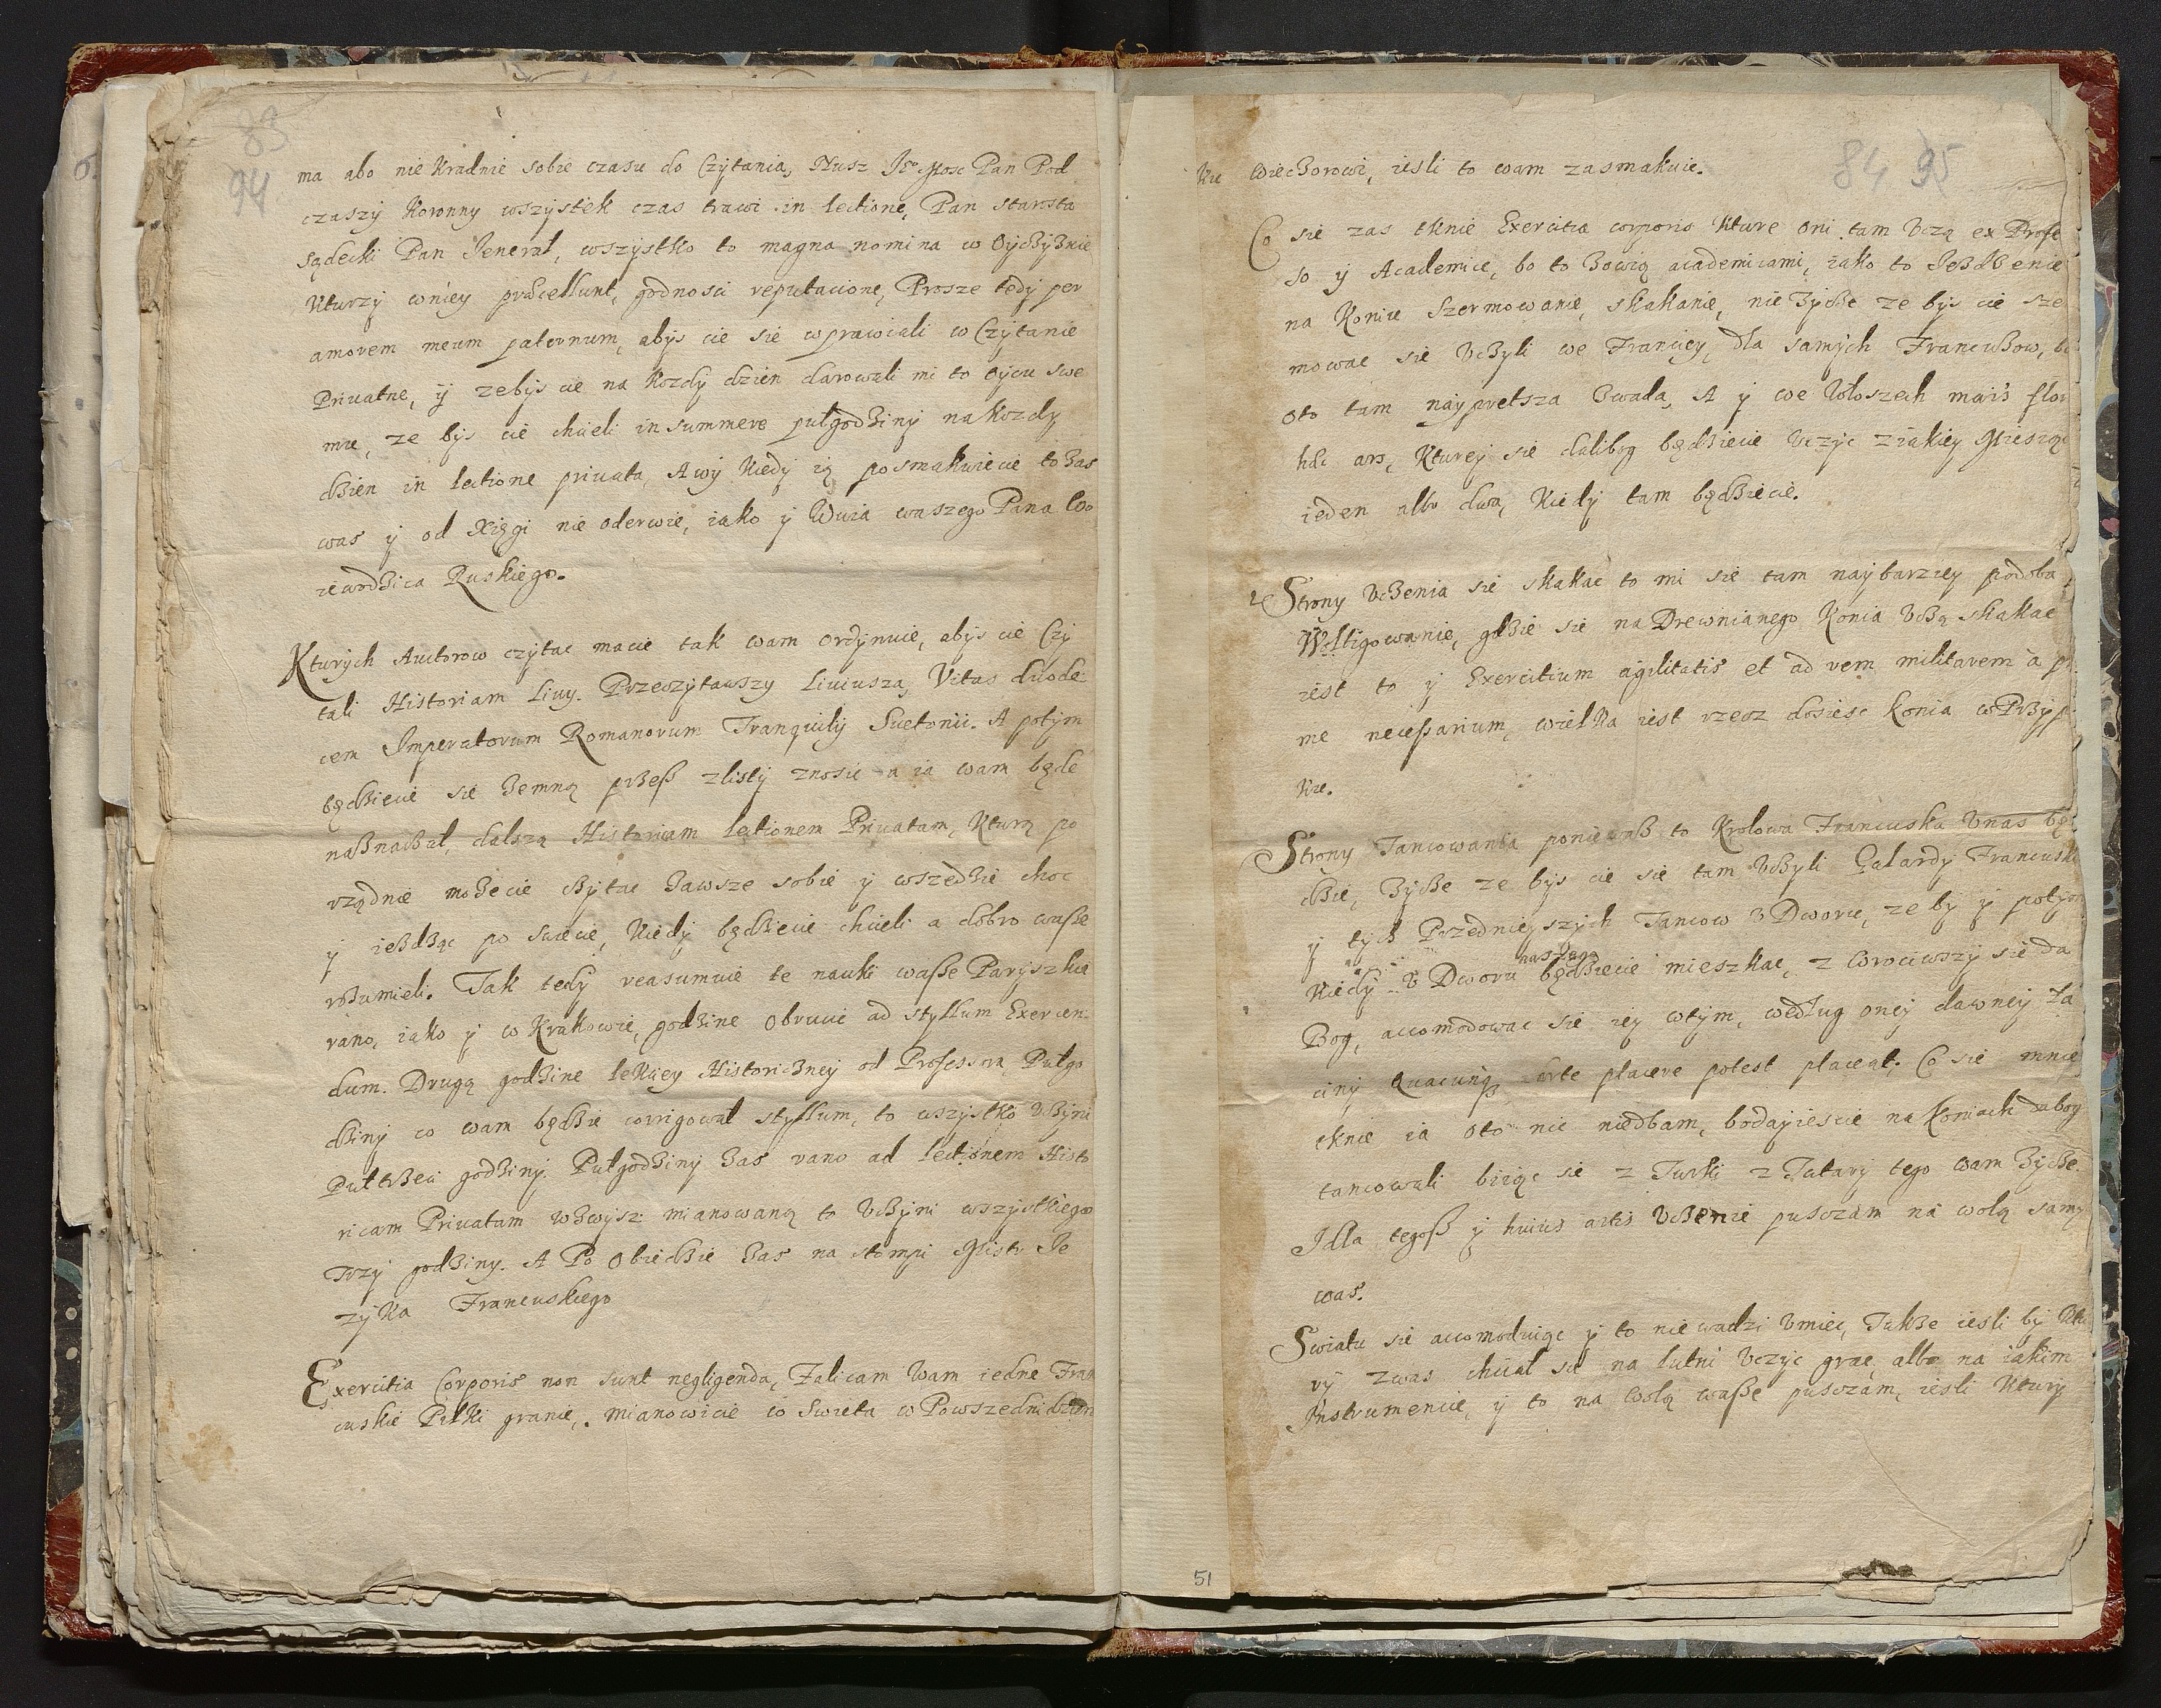 83
94
ma abo nie kradnie sobie czasu do Czÿtania, Nusz Je° Mosc Pan Pod
czaszÿ Koronny wszÿstek czas trawi in lectione, Pan starosta
sądecki Pan Jenerał, wszÿstko to magna nomina w Oÿchÿznie
Kturzÿ wniey præcellunt, godnosci reputacione, Prosze tedÿ per
amorem meum paternum, abÿs cie sie wprawiali w Czÿtanie
Priuatne, ÿ zebÿs cie na kozdÿ dzien darowali mi to Oÿcu swe
mu, ze bÿs cie chcieli insummere pułgodzinÿ na kozdÿ
dzien in lectione priuata, A wÿ kiedÿ ią posmakuiecie to zas
was ÿ od Xięgi nie oderwie, iako ÿ Wuia waszego Pana Wo
iewodzica Ruskiego.
Kturÿch Auctorow czÿtac macie tak wam ordÿnuie, abÿs cie Czÿ
tali Historiam Liuÿ. Przeczÿtawszÿ Liuiusza, Vitas duode
cem Imperatorum Romanorum Tranquilÿ Suetonii. A potÿm
będziecie sie zemną przesz zlistÿ znosic a ia wam będe
naznaczał, dalszą Historicam lectionem Priuatam, Kturą po
rządnie możecie czÿtac zawsze sobie ÿ wszedzie choc
ÿ iezdząc po swiecie, kiedÿ będziecie chcieli a dobro wasze
rozumieli. Tak tedÿ reasumuie te nauki wasze Parÿszkie
rano, iako ÿ w Krakowie, godzine obruci ad stÿllum Exercen
dum. Drugą godzine lekciey Historÿczneÿ od Professora, Pułgo
dzinÿ co wam będzie corrigował stÿllum, to wszÿstko vczÿni
Puł trzeci godzinÿ. Pułgodzinÿ zas rano ad lectionem Histo
ricam Priuatam wzwÿsz mianowaną to vczÿni wszÿstkiego
Trzÿ godzinÿ. A Po Obiedzie zas na stompi Mistr Je
zÿka Francuskiego
Exercitia Corporis non sunt negligenda, Zalicam Wam iedne Fran
cuskie Piłki granie, mianowicie co Swieta w Powszedni dzien
84 95
Ku wieczorowi, iesli to wam zasmakuie.
Co sie zas tknie Exercitia corporis kture oni tam vczą ex Profe
so ÿ Academice, bo to zowią academicami, iako to Jezdzenie
na Konie Szermowanie, skakanie, nie zÿcze ze bÿs cie szer
mowac sie vczÿli we Franciey, dla samÿch Francuzow, bo
oto tam naÿpretsza zwada, A ÿ we Włoszech magis flor
hæc ars, Ktureÿ sie dalibog będziecie vczÿc ziakieÿ Miesiąc
ieden albo dwa, kiedÿ tam będziecie.
Strony vczenia sie skakac to mi sie tam naÿbarziey podoba
Woltigowanie, gdzie sie na Drewnianego Konia vczą skakac
iest to ÿ Exercitium agilitatis et ad rem militarem a pri
me necessarium, wielka iest rzecz dosiesc konia w Przÿp
kie.
Strony Tancowania poniewasz to Krolowa Francuska vnas bę
dzie, zÿcze ze bÿs cie sie tam vczÿli Galardÿ Francuski
ÿ tÿch Przednieÿszÿch Tancow v Dworu, ze bÿ ÿ potÿm
naszego
kiedÿ v Dworu będziecie mieszkac, z Wrociwszÿ sie da
Bog, accomodowac sie ieÿ wtÿm, według oneÿ dawneÿ Ła
cinÿ Quacunq arte placere potest placeat. Co sie mnie
tknie ia oto nic niedbam, bodaÿiescie na Koniach dabog
tancowali biiąc sie z Turki z Tatarÿ tego wam zÿcze.
Jdla tegosz ÿ huius artis vczenie pusczam na wolą samÿ
was.
Swiatu sie accomoduiąc ÿ to nie wadzi vmiec, Takze iesli bÿ Ktu
rÿ zwas chciał sie na lutni vczÿc grac albo na iakim
Jnstrumencie, ÿ to na wolą wasze pusczam, iesli kturÿ
51